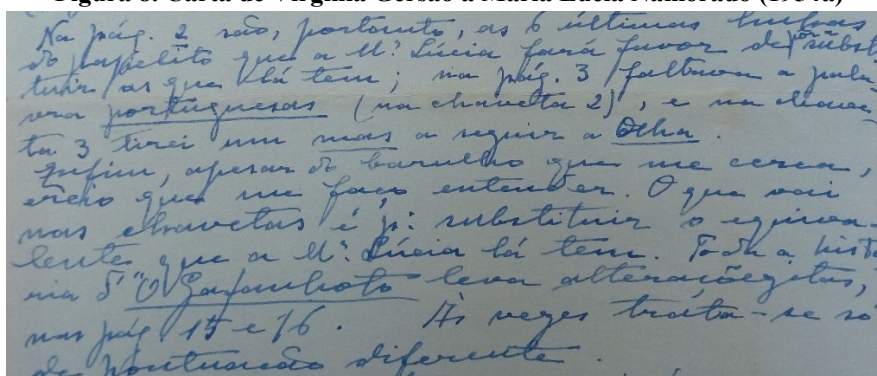 Figura 8. Carta de Virgínia Gersão a Maria Lúcia Namorado (1954a)
Na pág. 2 são, portanto, as 6 últimas linhas
do papelito que a M.ª Lúcia fará favor de substi
tuir as que lá tem; na pág. 3 faltava a pala-
vra portuguesas (na chaveta 2), e na chave-
ta 3 tirei um mas a seguir a Olha.
Enfim, apesar do barulho que me cerca,
creio que me faço entender. O que vai
nas chavetas é p.ª substituir o equiva-
lentes que a M.ª Lúcia lá tem. Toda a histó
ria d'"O Gafanhoto leva alteraçõezitas,
nas pág. 15 e 16. Às vezes trata-se só
de pontuação diferente.